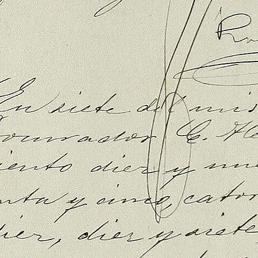 En siete del mis
ourador C.
iento diez y nue
nta y cinco, cator
diez, diez y siete